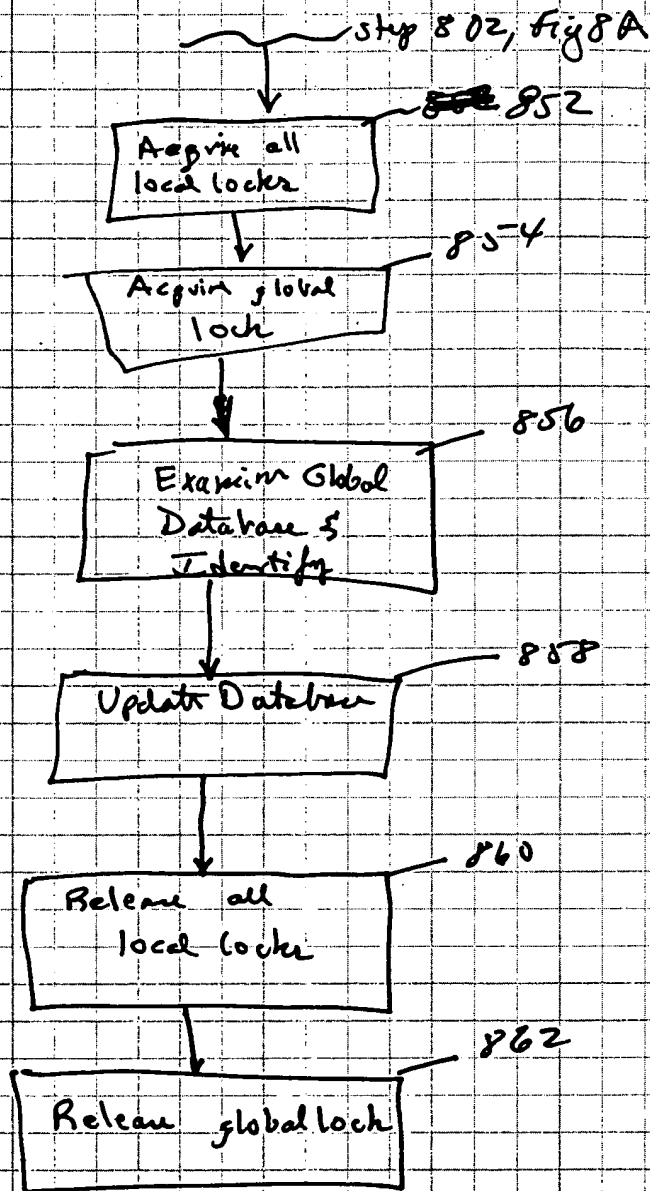 step 802, Fig 8A
852
Acquire all
local locks
854
Acquire global
lock
856
Examine Global
Database &
Identify
858
Update Database
860
Release all
local locks
862
Release global lock